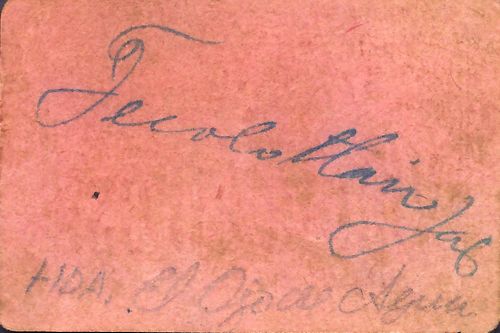 Tecolotlan Jal
HDA. El Ojo de Agua